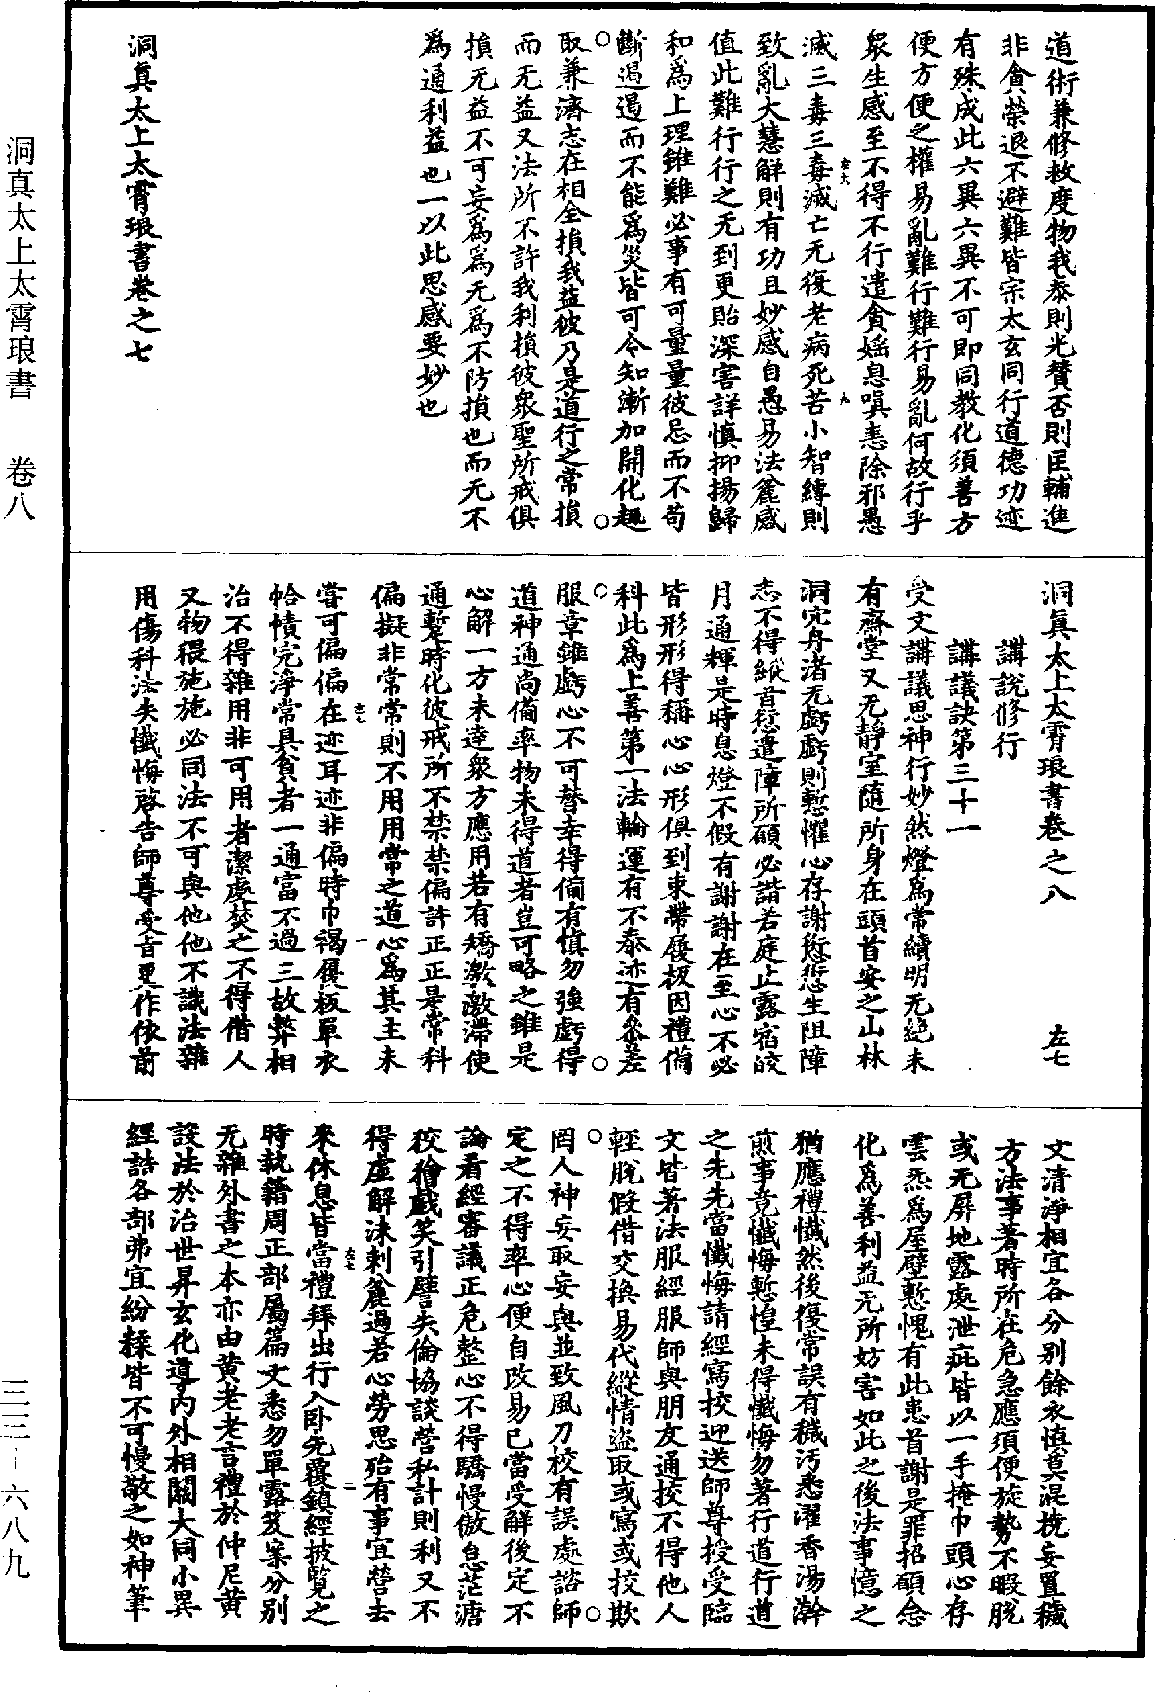 道術兼修救度物我泰則光贊否則匡輔進
非貪榮退不避難皆宗太玄同行道德功迹
有殊成此六異六異不可即同教化須善方
便方便之權易亂難行難行易亂何故行乎
衆生感至不得不行遣貪婬息嗔恚除邪愚
滅三毒三毒滅亡无復老病死苦小智縛則
致亂大慧解則有功且妙感自愚易法麁感
值此難行行之无到更貽深害詳慎抑揚歸
和為上理雖難必事有可量量彼忌而不苟
斷遏遏而不能為災皆可令知漸加開化趣
取兼濟志在相全損我益彼乃是道行之常損
而无益又法所不許我利損彼衆聖所戒俱
損无益不可妄為為无為不防損也而无不
為通利益也一以此思感要妙也
洞真太上太霄琅書卷之七
洞真太上太霄琅書卷之八 左七
講說修行
講議訣第三十一
受文講議思神行妙然燈為常續明无絕未
有齋堂又无靜室隨所身在頭首安之山林
洞穴舟渚无虧虧則慙懼心存謝愆愆生阻障
志不得縱首愆遣障所願必諧若庭止露宿皎
月通輝是時息燈不假有謝謝在至心不必
皆形形得稱心心形俱到束帶履板因禮備
科此為上善第一法輪運有不泰迹有參差
服章雖虧心不可替幸得備有慎勿強虧得
道神通尚備率物未得道者豈可略之雖是
心解一方未達衆方應用若有矯激激滯使
通蹔時化彼戒所不禁禁偏許正正是常科
偏擬非常常則不用用常之道心為其主未
嘗可偏偏在迹耳迹非偏時巾褐履板單衣
帢幘完淨常具貧者一通富不過三故弊相
治不得雜用非可用者潔處焚之不得借人
又物穢施施必同法不可與他他不識法雜
用傷科法失懺悔啓告師尊受旨更作依前
文清淨相宜各分別餘衣慎莫混撓妄置穢
方法事著時所在危急應須便旋勢不暇脫
或无屏地露處泄疵皆以一手掩巾頭心存
雲炁為屋壁慙愧有此患首謝是罪招願念
化為善利益无所妨害如此之後法事憶之
猶應禮懺然後復常誤有穢污悉濯香湯澣
煎事竟懺悔慙惶未得懺悔勿著行道行道
之先先當懺悔請經寫校迎送師尊授受臨
文皆著法服經服師與朋友通挍不得他人
輕脫假借交換易代縱情盜取或寫或挍欺
罔人神妄取妄與並致風刀校有誤處諮師
定之不得率心便自改易已當受解後定不
論看經審議正危整心不得驕慢傲怠茫溏
狡獪戲笑引譬失倫協談營私計則利又不
得虛解沫剌麁過若心勞思殆有事宜營去
來休息皆當禮拜出行入卧先覆鎮經披覧之
時執籍周正部屬篇文悉勿單露笈案分別
无雜外書之本亦由黃老老言禮於仲尼黃
設法於治世昇玄化導內外相關大同小異
經誥各部弗宜紛糅皆不可慢敬之如神筆
洞真太上太霄琅書 卷八
三三-六八九